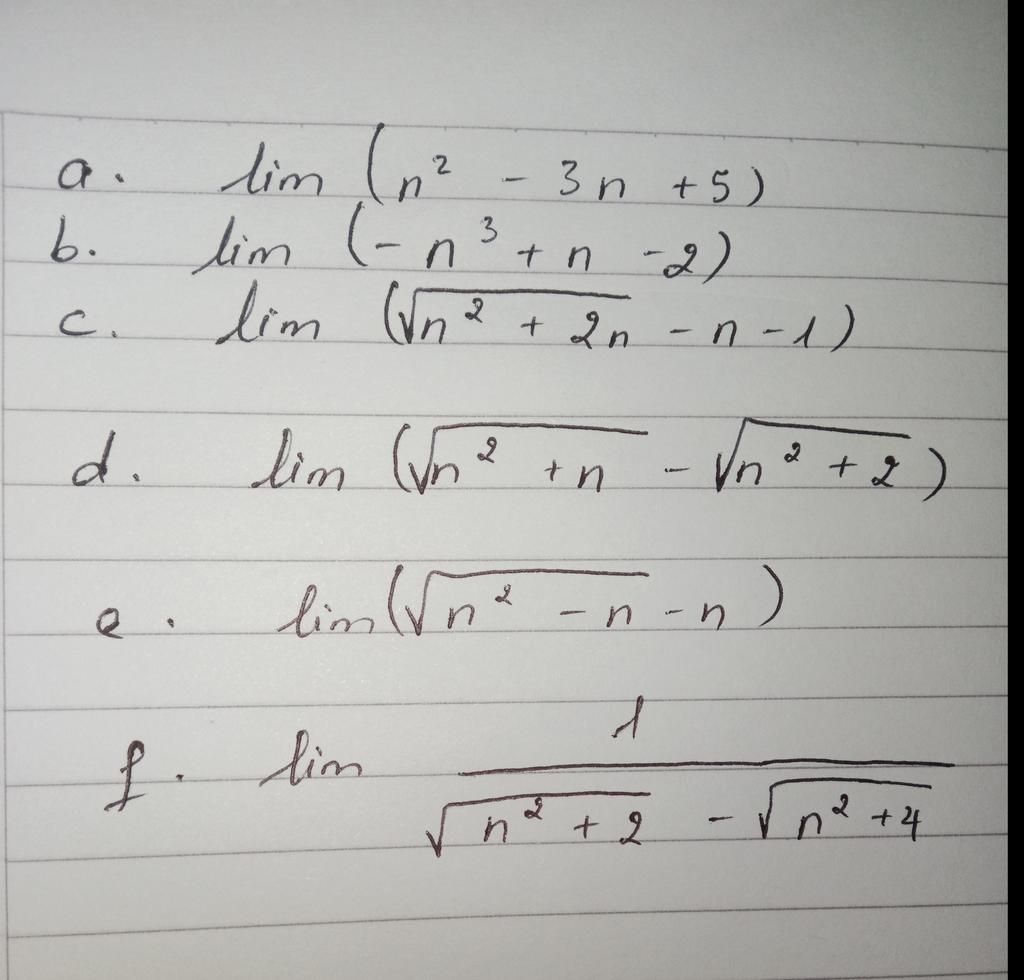 a. lim (n² - 3n + 5)
b. lim (-n³ + n - 2)
c. lim (√(n² + 2n) - n - 1)
d. lim (√(n² + n) - √(n² + 2))
e. lim (√(n² - n) - n)
f. lim 1 / (√(n² + 2) - √(n² + 4))